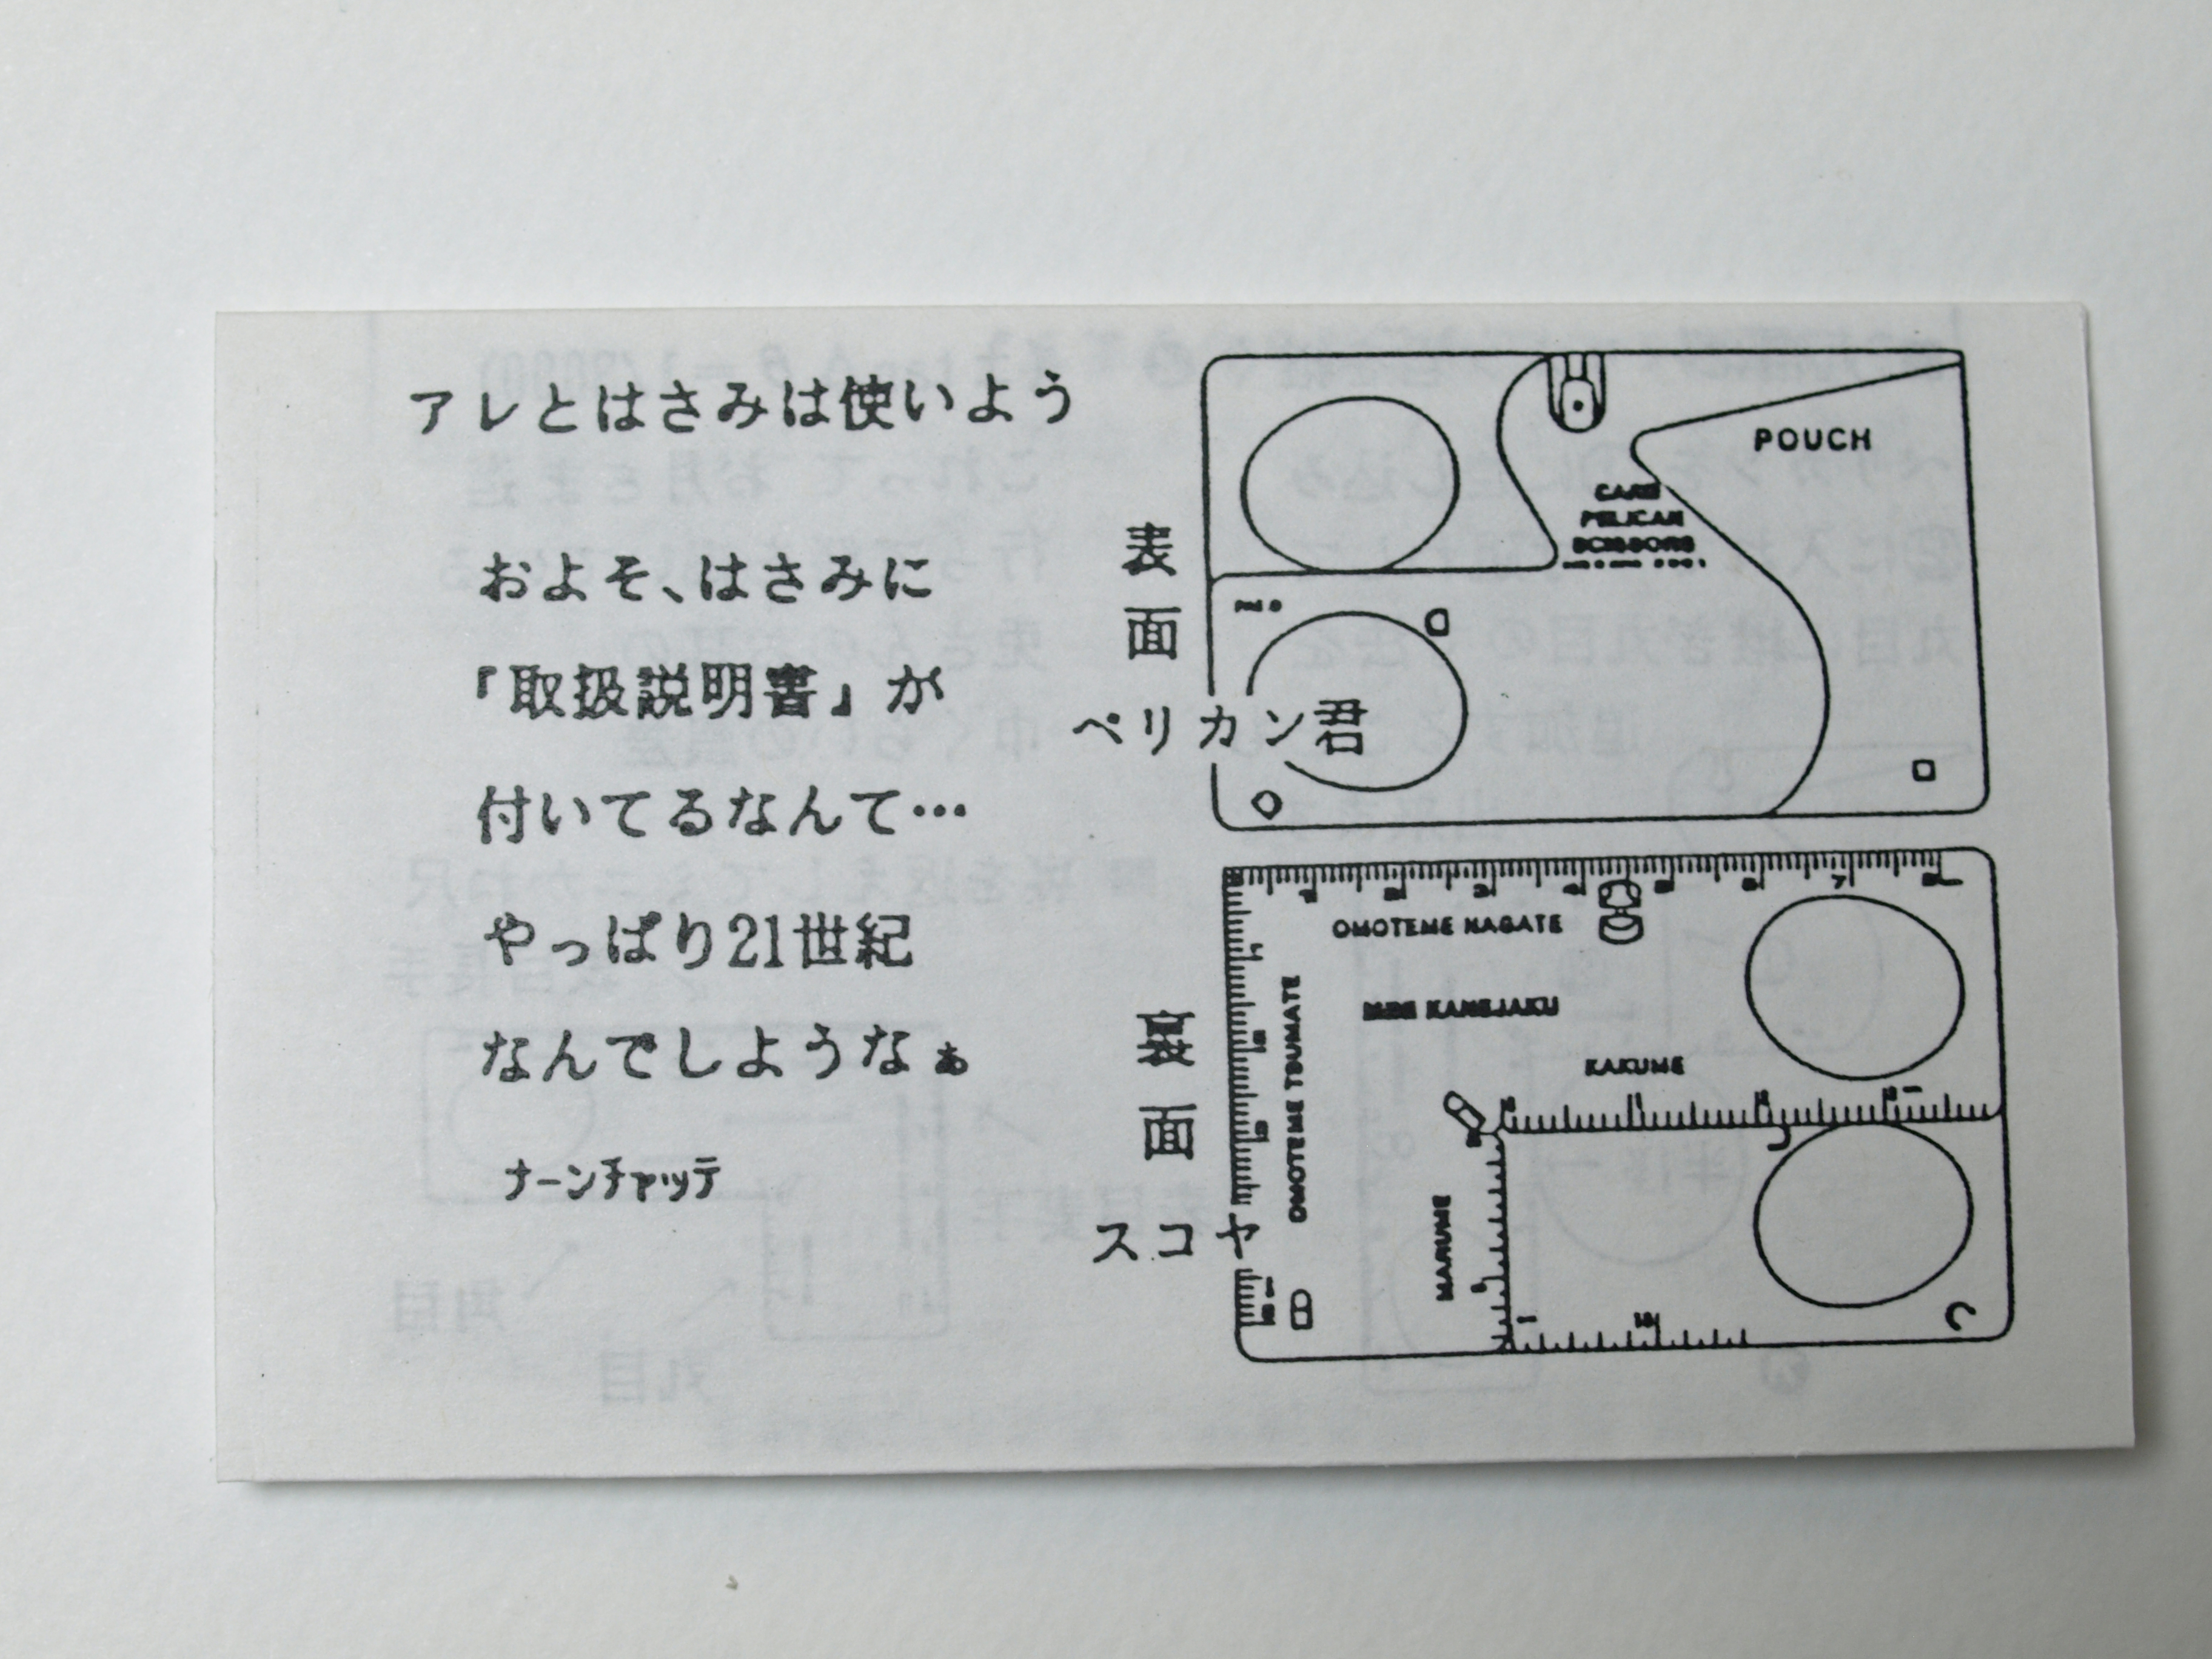 アレとはさみは使いよう
およそ、はさみに
『取扱説明書』が
付いてるなんて…
やっぱり21世紀
なんでしようなぁ
ナーンチャッテ
表面
ペリカン君
POUCH
CARD
PELICAN
SCISSORS
裏面
スコヤ
OMOTEME NAGATE
OMOTEME TSUMATE
MINI KANEJAKU
KAKUME
MARUME